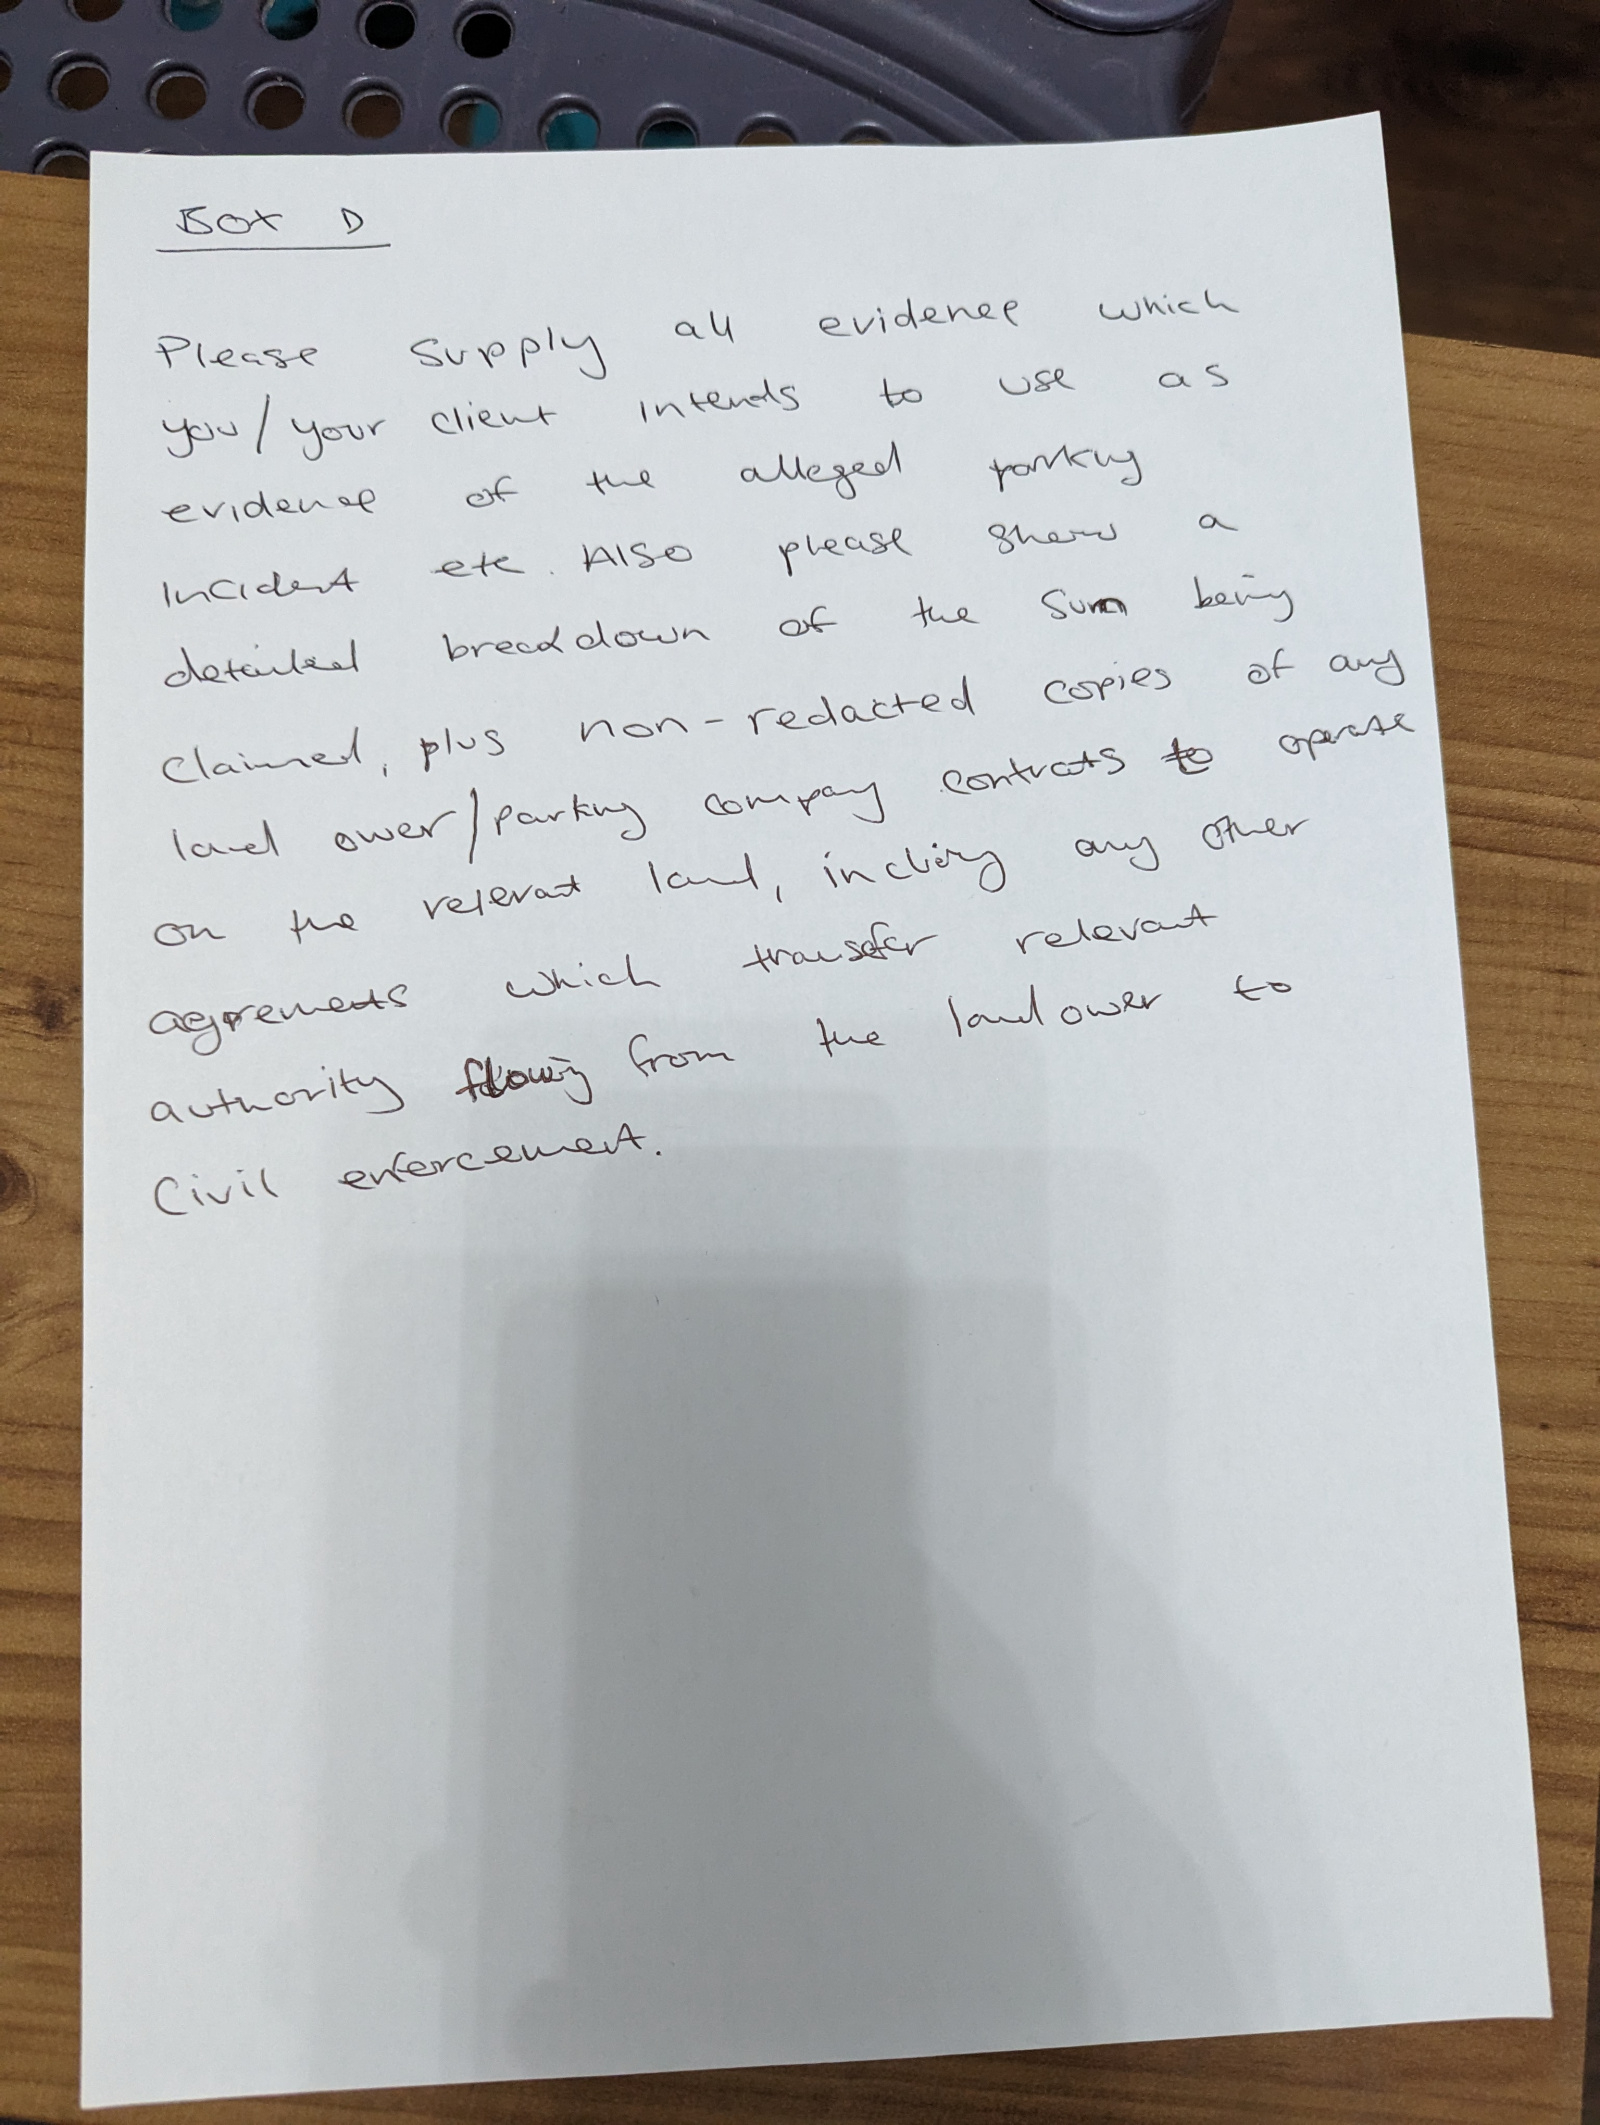 Box D
Please supply all evidence which
you/your client intends to use as
evidence of the alleged parking
incident etc. Also please show a
detailed breakdown of the sum being
claimed, plus non-redacted copies of any
land ower/parking company contrats to operate
on the relevant land, incluing any other
agrements which transfer relevant
authority flowing from the landower to
Civil enforcement.